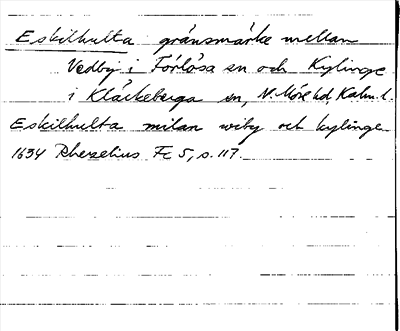 Eskilhulta gränsmärke mellan
Vedby i Förlösa sn och Kylinge
i Kläckeberga sn, N. Möre hd, Kalm. l.
Eskilhulta milan wiby och kylinge
1634 Rhezelius Fc 5, s. 117.